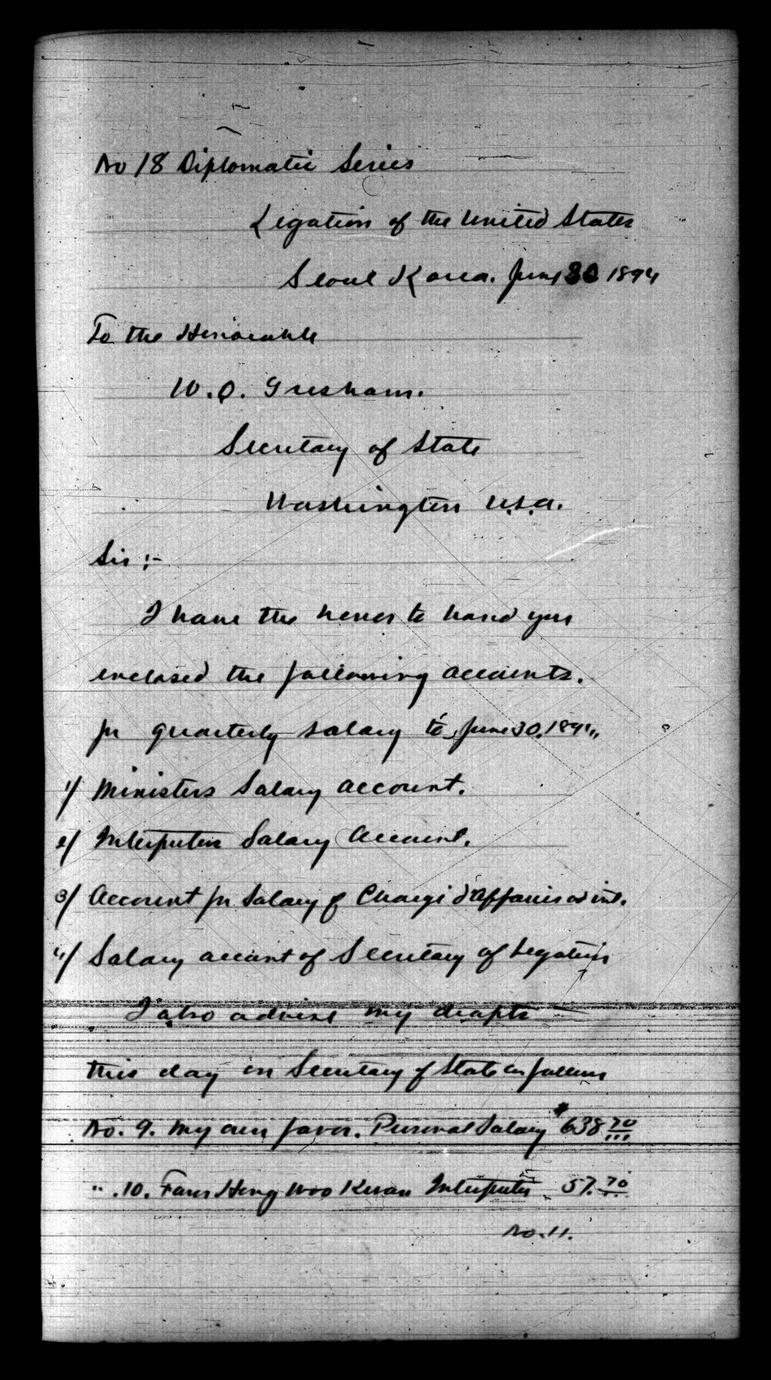 No 18 Diplomatic Series
Legation of the United States
Seoul Korea. June 30 1894
To the Honorable
W. Q. Gresham.
Secretary of State
Washington U.S.A.
Sir :-
I have the honor to hand you
enclosed the following accounts.
for quarterly salary to June 30, 1894,
1/ Ministers Salary account.
2/ Interpreters Salary Account.
3/ Account for Salary of Chargé d'Affaires ad int.
4/ Salary account of Secretary of Legation
I also advise my drafts
this day on Secretary of State as follows
No. 9. My own favor. Personal Salary $638.70
" .10. Favor Hong Woo Kwan Interpreter 57.70
No. 11.